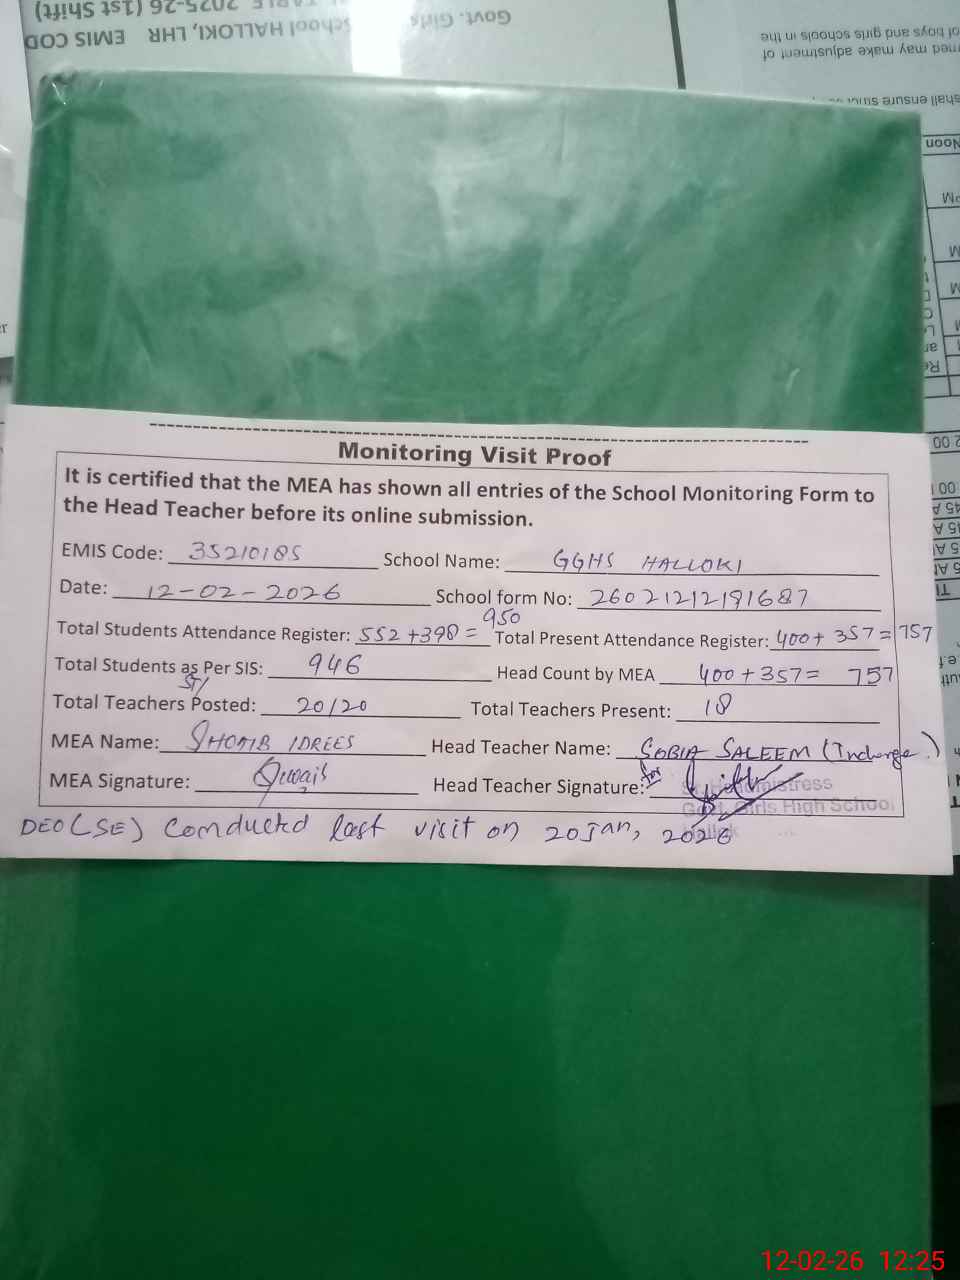 TABLE 2025-26 (1st Shift)
Govt. Girls School HALLOKI, LHR EMIS COD
of boys and girls schools in the
may make adjustment of
shall ensure
Noon
Monitoring Visit Proof
It is certified that the MEA has shown all entries of the School Monitoring Form to
the Head Teacher before its online submission.
EMIS Code: 35210185 School Name: GGHS HALLOKI
Date: 12-02-2026 School form No: 26021212191687
Total Students Attendance Register: 552+398= 950 Total Present Attendance Register: 400+357=757
Total Students as Per SIS: 946 Head Count by MEA 400+357= 757
Total Teachers Posted: 20/20 Total Teachers Present: 18
MEA Name: SHOAIB IDREES Head Teacher Name: SOBIA SALEEM (Incharge)
MEA Signature: Head Teacher Signature: for
Headmistress
Govt. Girls High School
DEO(SE) Conducted last visit on 20 Jan, 2026
12-02-26 12:25